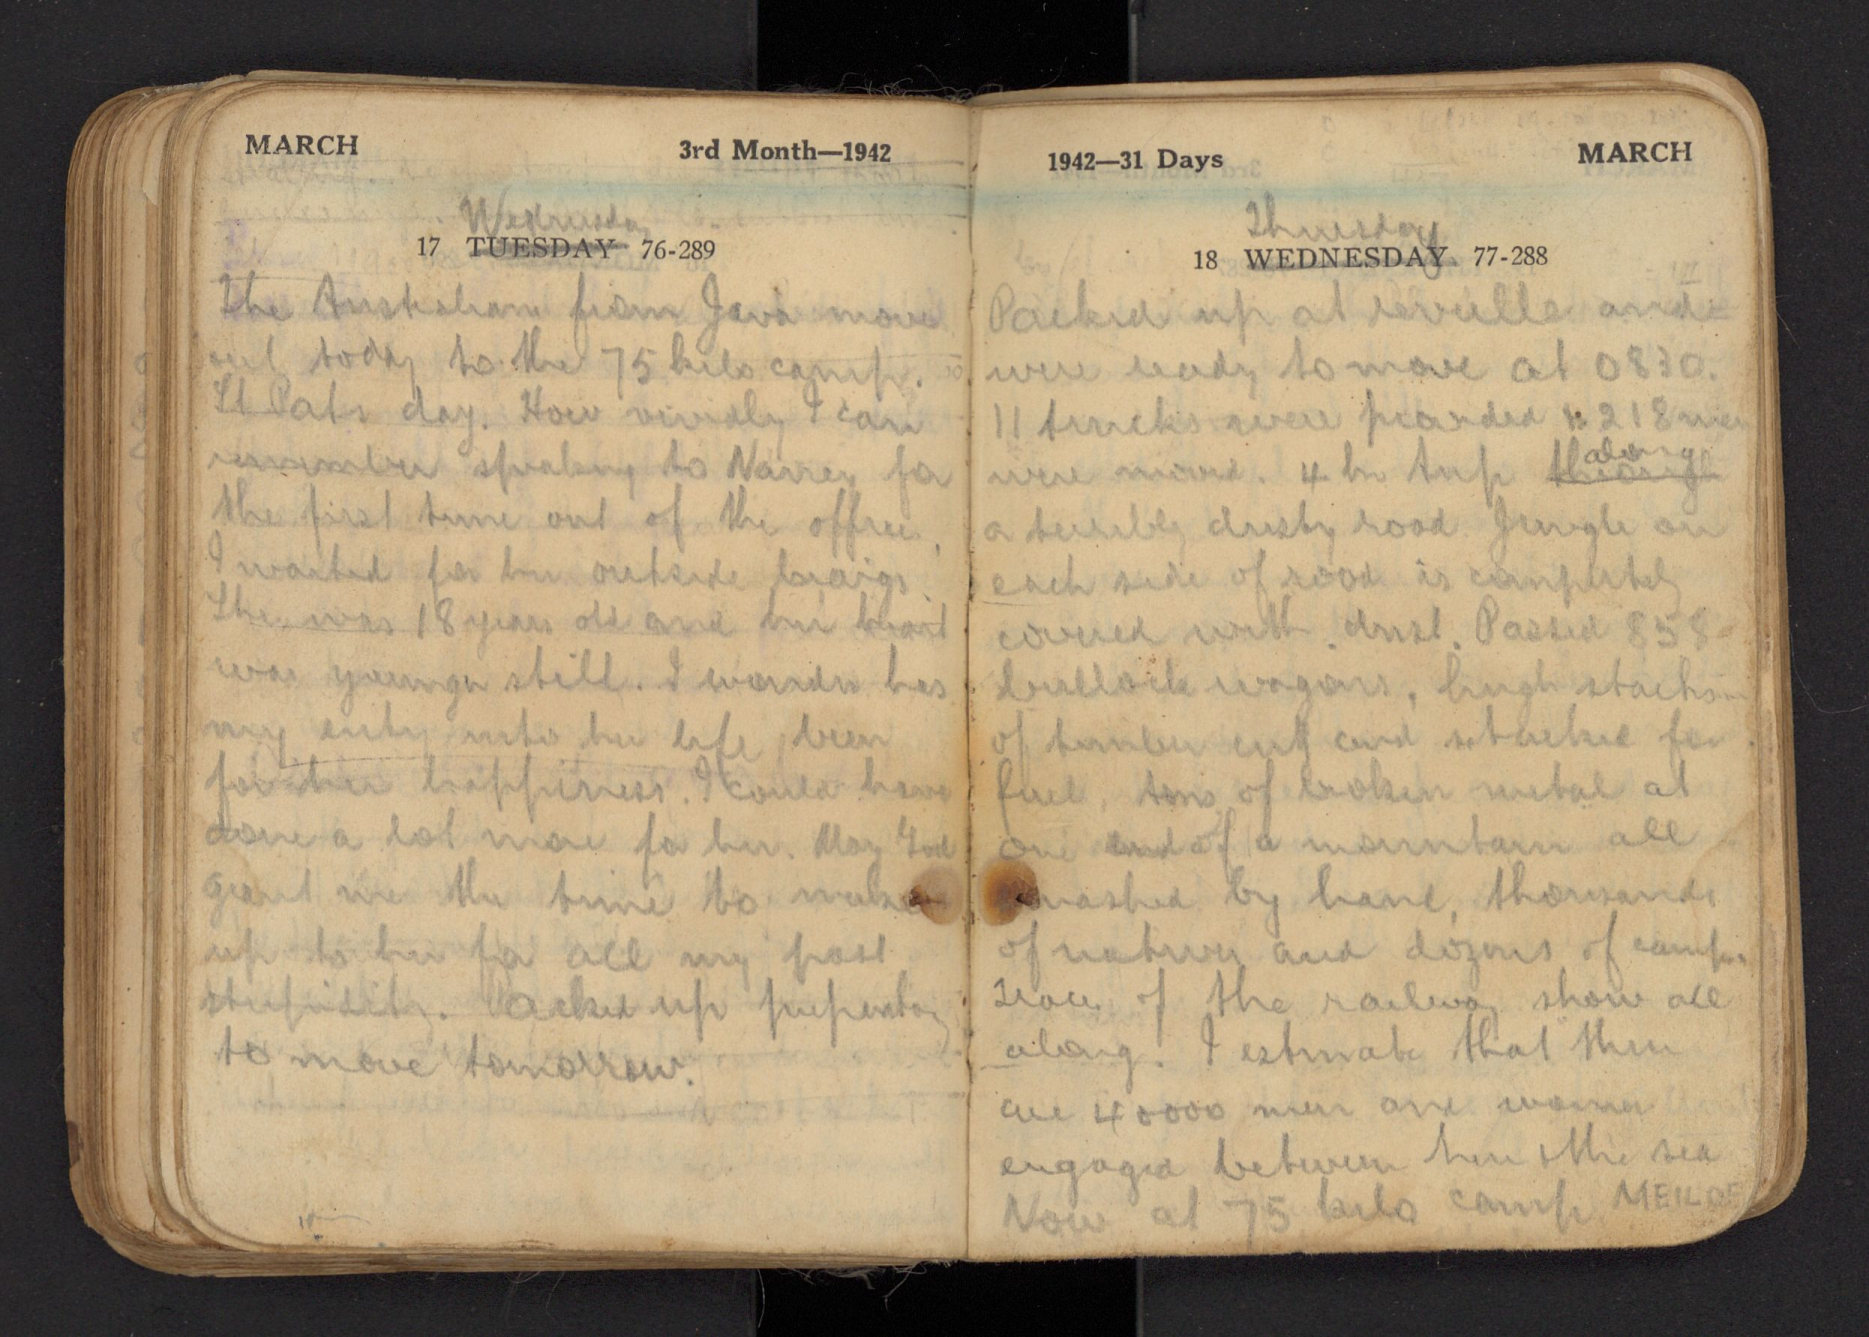 MARCH 3rd Month—1942
Wednesday
17 TUESDAY 76-289
The Australians from Java move
out today to the 75 kilo camp.
St Pats day. How vividly I can
remember speaking to Narrey for
the first time out of the office.
I waited for her outside
She was 18 years old and her heart
was younger still. I wonder has
my entry into her life been
for her happiness. I could have
done a lot more for her. May God
grant me the time to make
up to her for all my past
stupidity. Packed up preparatory
to move tomorrow.
1942—31 Days MARCH
Thursday
18 WEDNESDAY 77-288
Packed up at reveille and
were ready to move at 0830.
11 trucks were provided & 218 men
were moved. 4 hr trip along
a terribly dusty road. Jungle on
each side of road is completely
covered with dust. Passed 858
bullock wagons, hugh stacks
of timber cut and stacked for
fuel, tons of broken metal at
one end of a mountain all
smashed by hand, thousands
of natives and dozens of camps
Traces of the railway show all
along. I estimate that there
are 40000 men and women
engaged between here & the sea
Now at 75 kilo camp MEILOE